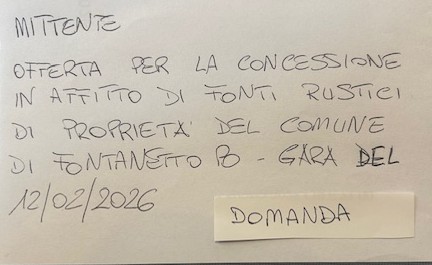 MITTENTE
OFFERTA PER LA CONCESSIONE
IN AFFITTO DI FONTI RUSTICI
DI PROPRIETA' DEL COMUNE
DI FONTANETTO PO - GARA DEL
12/02/2026
DOMANDA